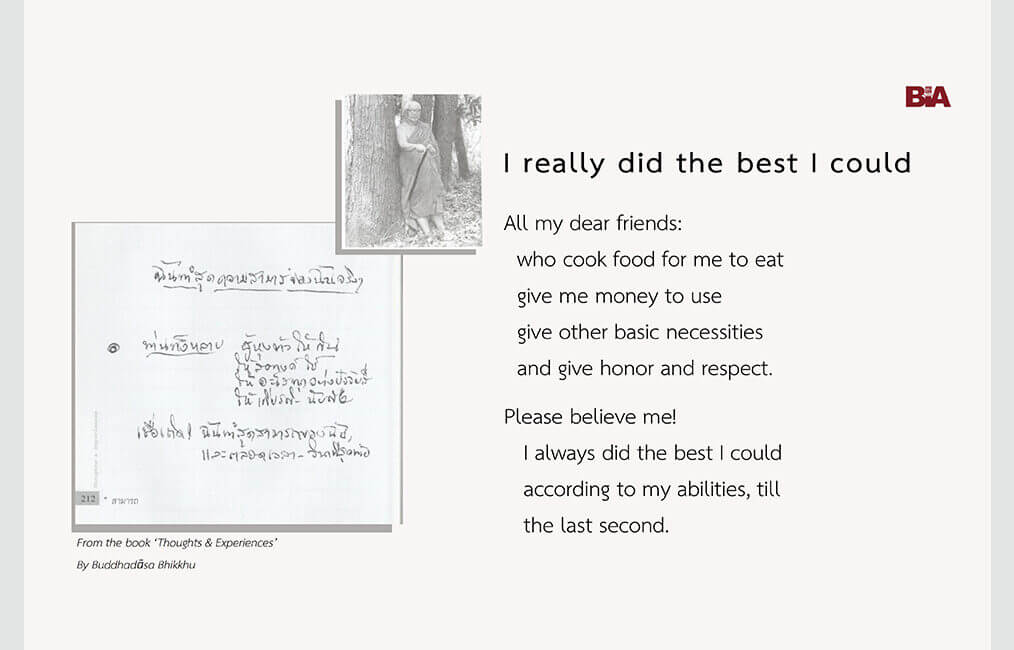 BIA
I really did the best I could
All my dear friends:
who cook food for me to eat
give me money to use
give other basic necessities
and give honor and respect.
Please believe me!
I always did the best I could
according to my abilities, till
the last second.
ฉันทำสุดความสามารถของฉันจริงๆ
ท่านทั้งหลาย ผู้หุงข้าวให้ฉัน
ให้สตางค์ใช้
ให้อะไรทุกอย่าง
ให้เกียรติ-
เชื่อเถิด! ฉันทำสุดสามารถของฉัน,
และตลอดเวลา-วินาทีสุดท้าย
212 * สามารถ
From the book ‘Thoughts & Experiences’
By Buddhadāsa Bhikkhu